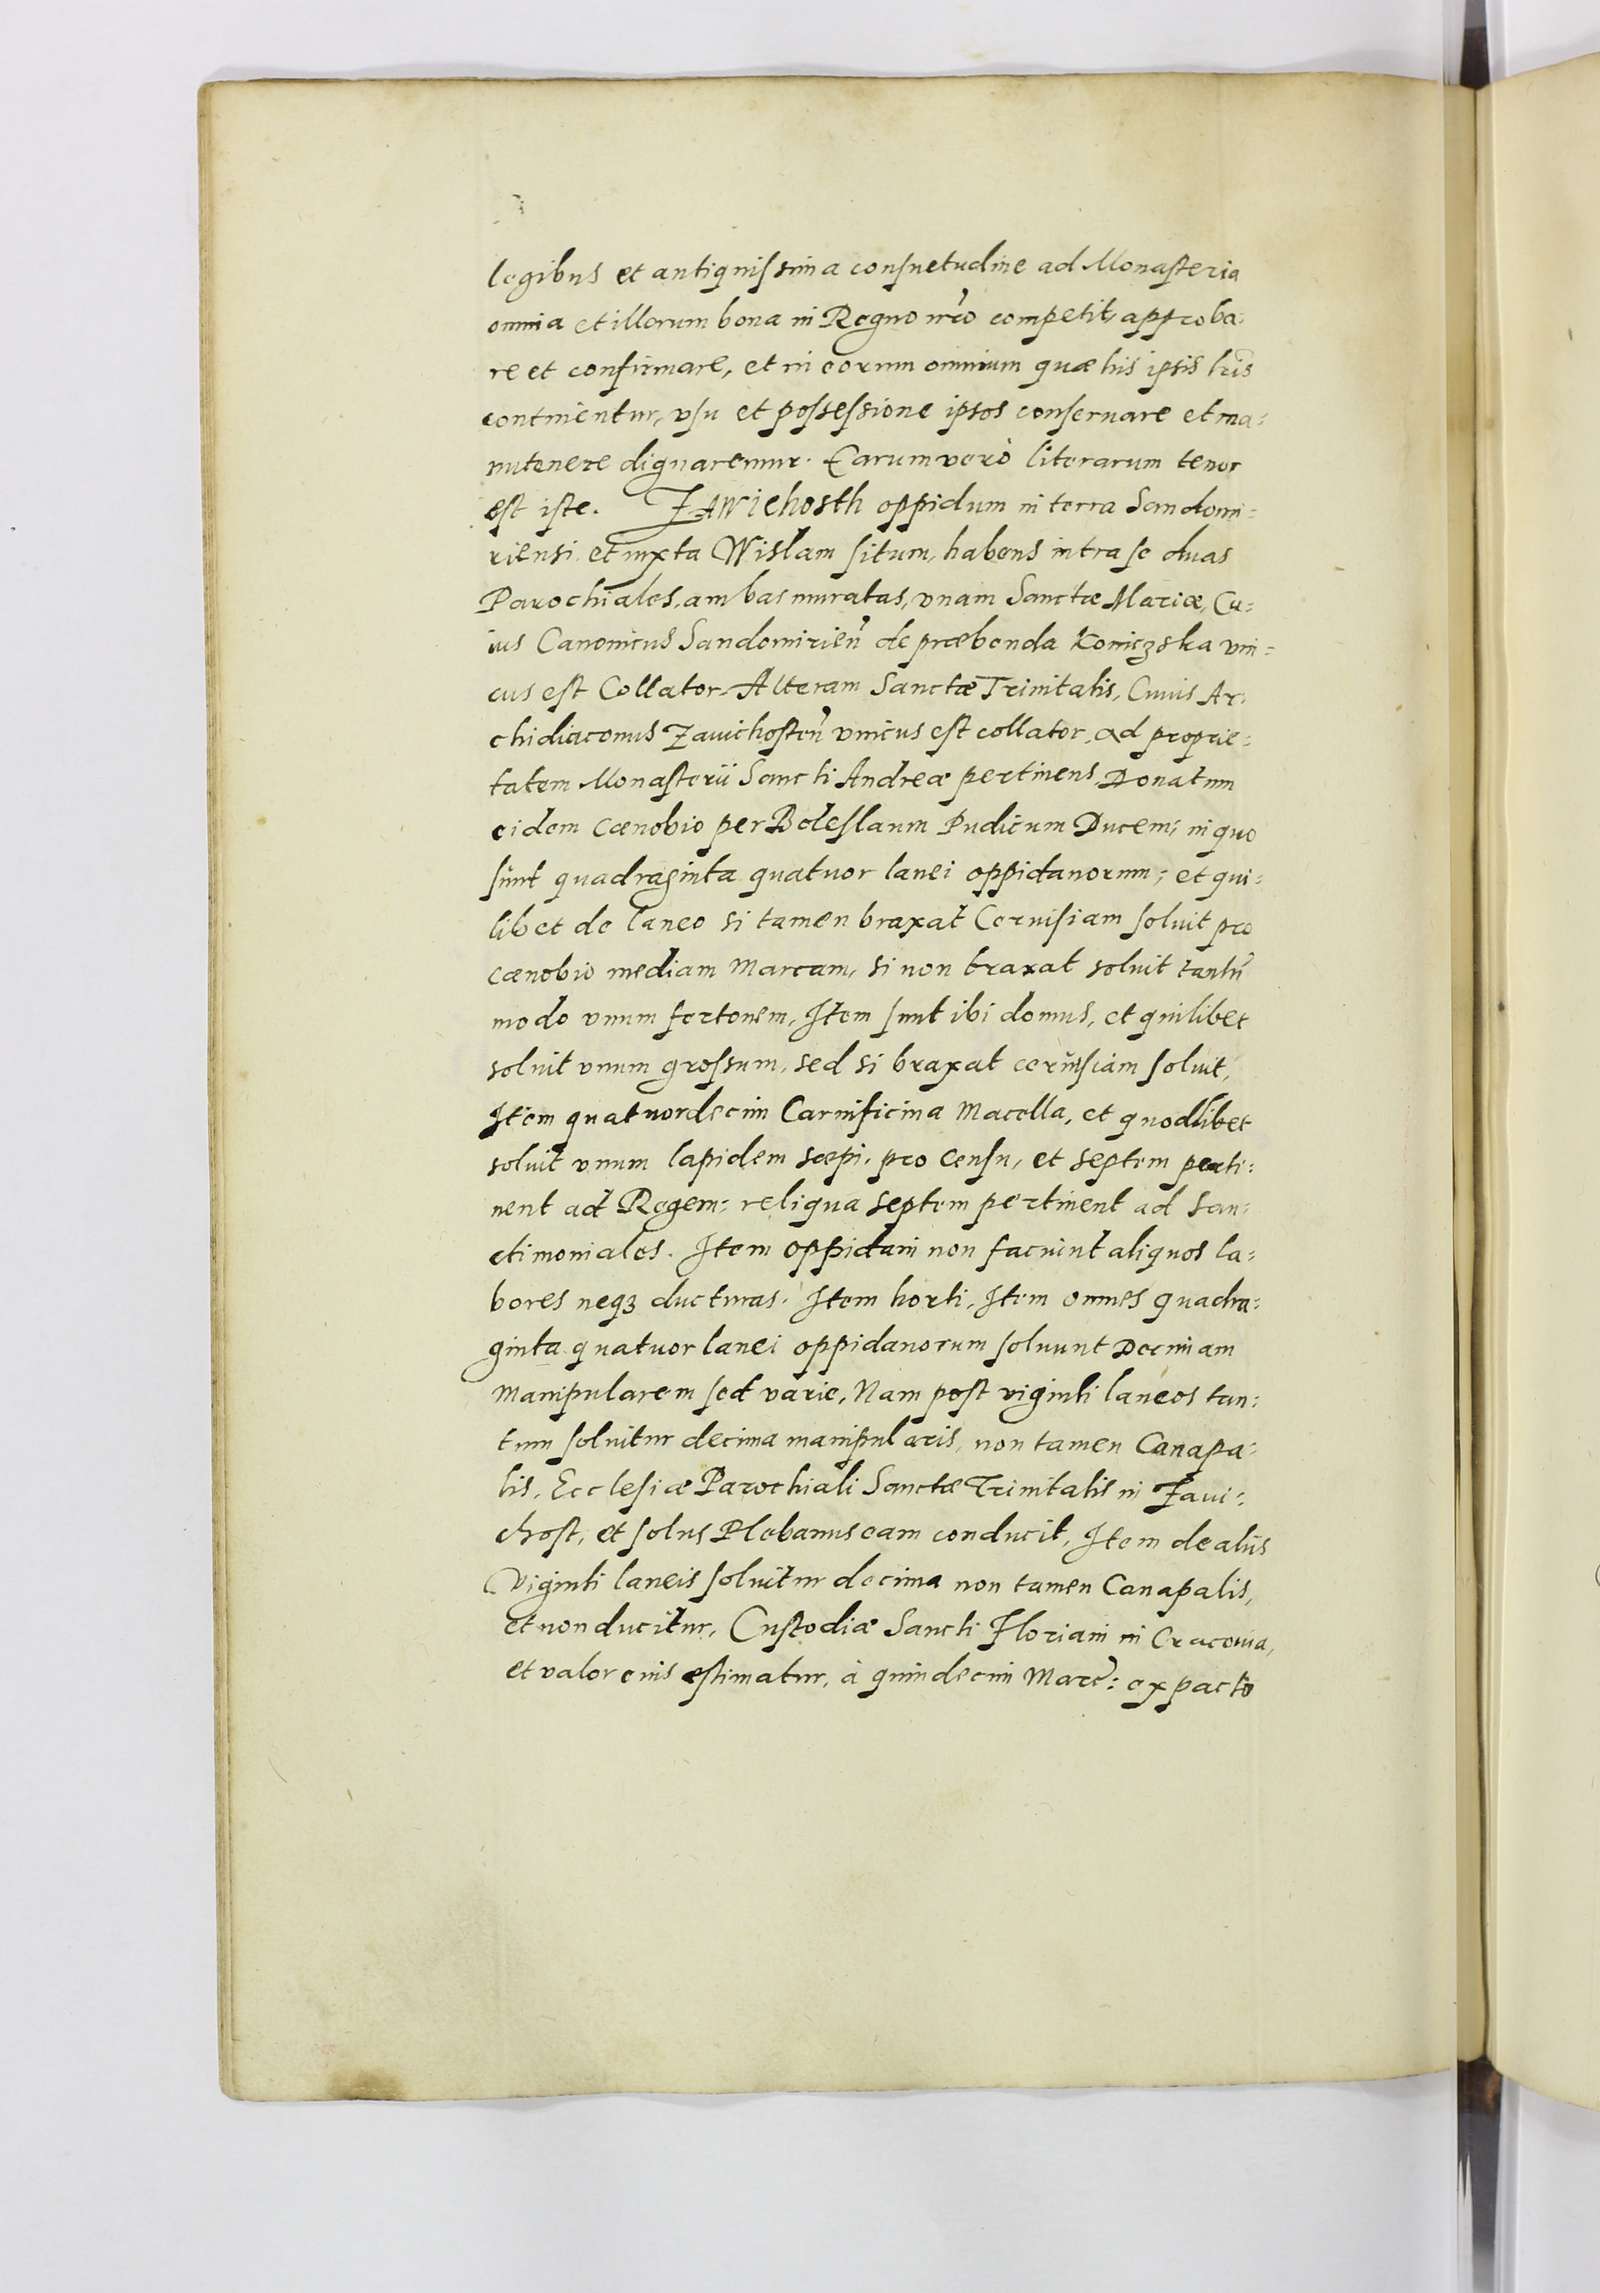 legibus et antiquissima consuetudine ad Monasteria
omnia et illorum bona in Regno nr̃o competit, approba-
re et confirmare, et in eorum omnium quæ his ipsis lr̃is
continentur, vsu et possessione ipsos conseruare et ma=
nutenere dignaremur. Earum verò literarum tenor
est iste. ZAWichosth oppidum in terra Sandomi=
riensi et iuxta Wislam situm, habens intra se duas
Parochiales, ambas muratas, vnam Sanctæ Mariæ, Cu=
ius Canonicus Sandomirien̄ de præbenda Koniczska vni=
cus est Collator. Alteram Sanctæ Trinitatis, Cuius Ar-
chidiaconus Zauichosten̄ vnicus est collator, ad proprie=
tatem Monasterii Sancti Andreæ pertinens, Donatum
eidem cœnobio per Boleslaum Pudicum Ducem; in quo
sunt quadraginta quatuor lanei oppidanorum; et qui=
libet de laneo si tamen braxat Ceruisiam soluit pro
cœnobio mediam marcam, si non braxat soluit tantū
modo vnum fertonem, Item sunt ibi domus, et quilibet
soluit vnum grossum, sed si braxat ceruisiam soluit,
Item quatuordecim Carnificina Macella, et quodlibet
soluit vnum lapidem sæpi, pro Censu, et septem perti=
nent ad Regem: reliqua septem pertinent ad San=
ctimoniales. Item oppidani non faciunt aliquos la=
bores neqꝫ ducturas. Item horti, Item omnes quadra=
ginta quatuor lanei oppidanorum soluunt Decimam
manipularem sed varie, Nam post viginti laneos tan=
tum soluitur decima manipularis, non tamen Canapa=
lis, Ecclesiæ Parochiali Sanctæ Trinitatis in Zaui=
chost, et solus Plebanus eam conducit, Item de aliis
Viginti laneis soluitur decima non tamen Canapalis,
et non ducitur, Custodiæ Sancti Floriani in Cracouia,
et valor eius estimatur, à quindecim Marc̃: ex pacto